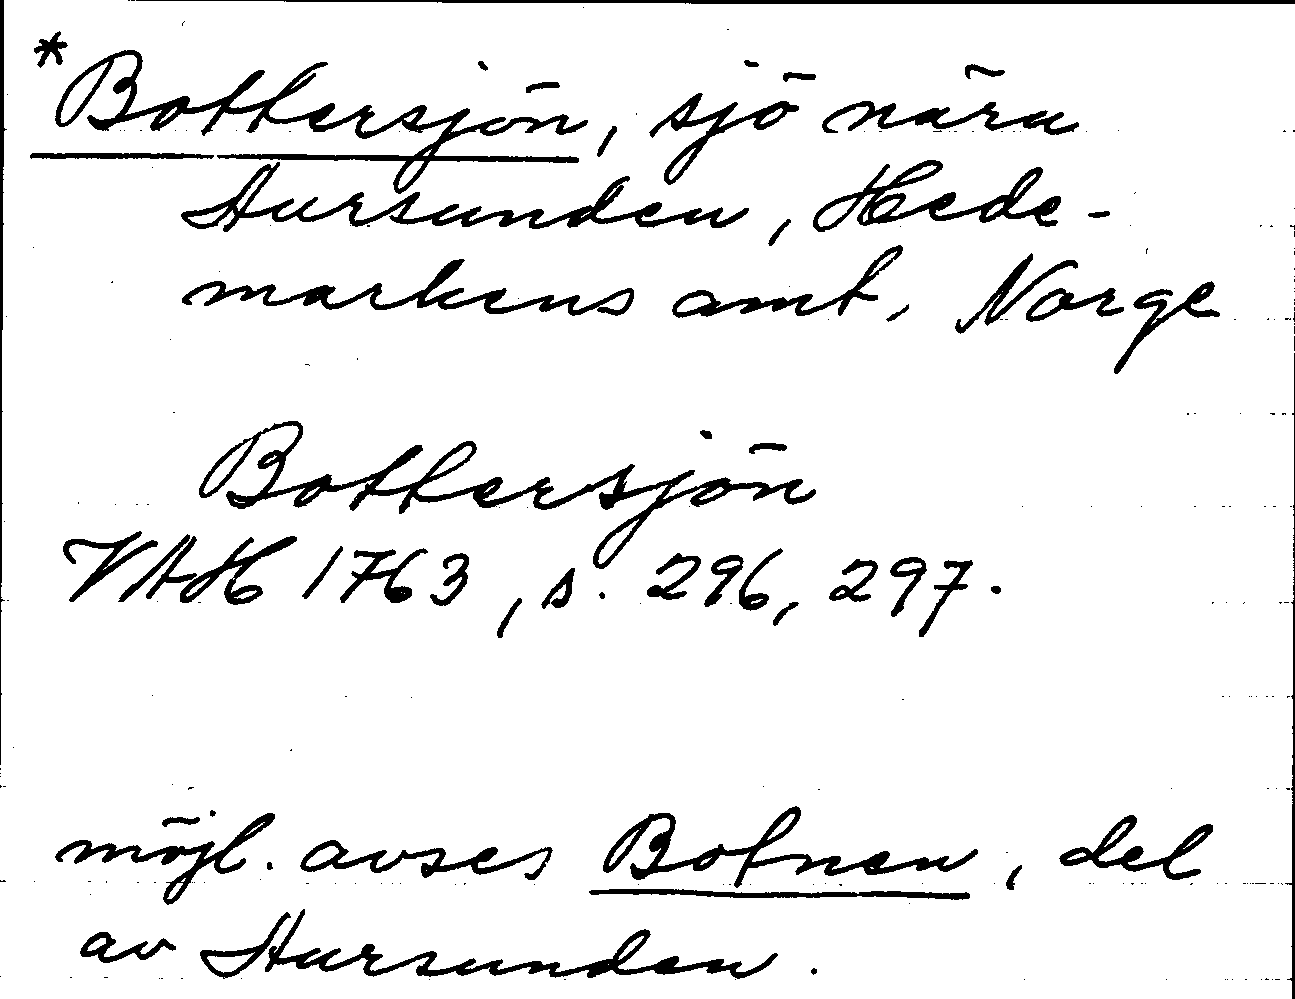 *Bottersjön, sjö nära
Aursunden, Hede-
markens amt, Norge
Bottersjön
VAH 1763, s. 296, 297.
möjl. avses Botnen, del
av Aursunden.